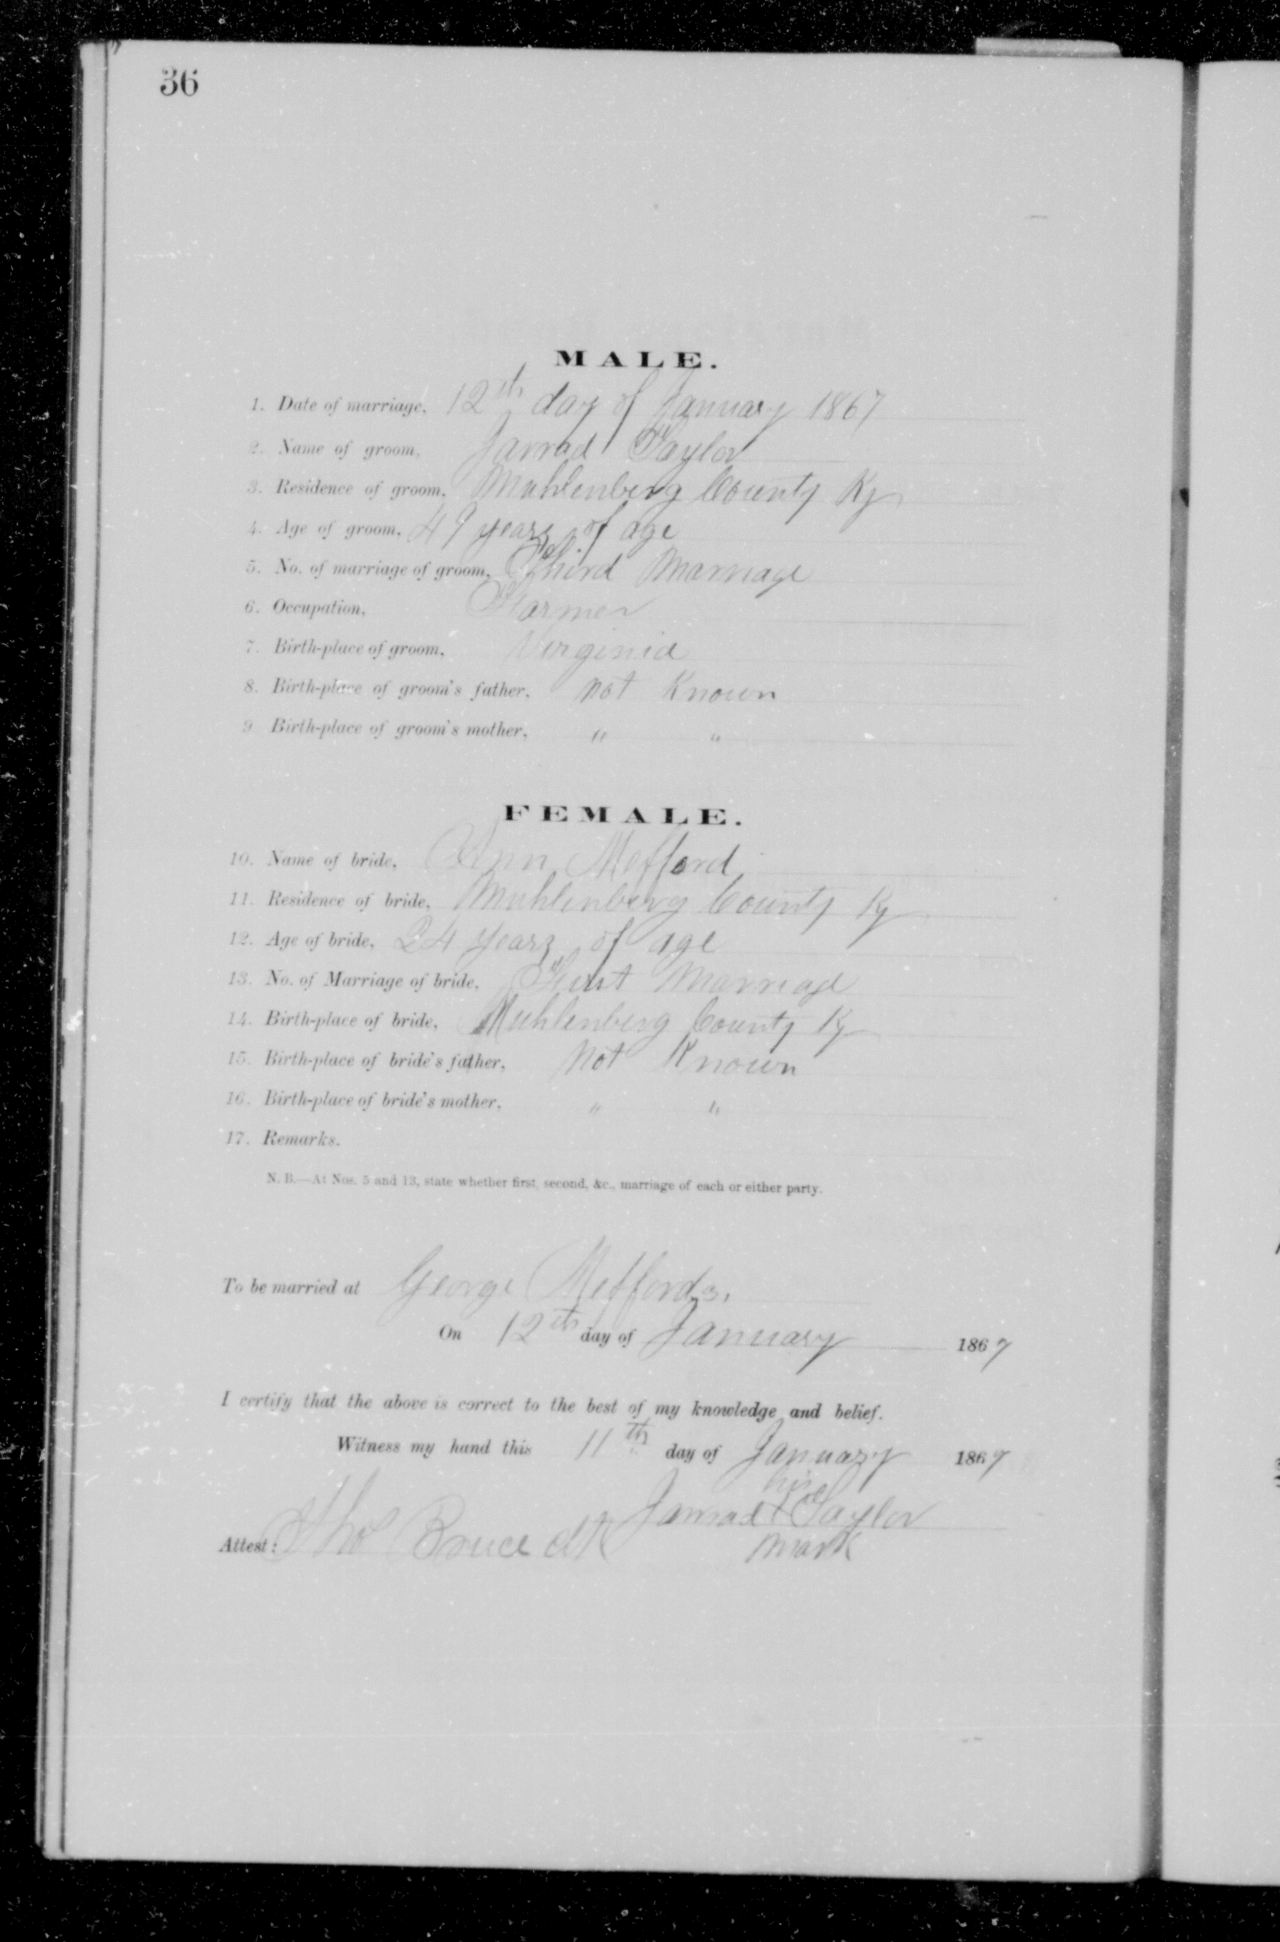 36
MALE.
1. Date of marriage, 12th day of January 1867
2. Name of groom, Jarrad Taylor
3. Residence of groom, Muhlenberg County Ky
4. Age of groom, 49 years of age
5. No. of marriage of groom, Third Marriage
6. Occupation, Farmer
7. Birth-place of groom, Virginia
8. Birth-place of groom's father, not Known
9 Birth-place of groom's mother, " "
FEMALE.
10. Name of bride, Ann Mefford
11. Residence of bride, Muhlenberg County Ky
12. Age of bride, 24 years of age
13. No. of Marriage of bride, First Marriage
14. Birth-place of bride, Muhlenberg County Ky
15. Birth-place of bride's father, Not Known
16. Birth-place of bride's mother, " "
17. Remarks.
N. B.—At Nos. 5 and 13, state whether first, second, &c., marriage of each or either party.
To be married at George Meffords.
On 12th day of January 1867
I certify that the above is correct to the best of my knowledge and belief.
Witness my hand this 11th day of January 1867
his
Jarrad X Taylor
mark
Attest: Tho Bruce clk